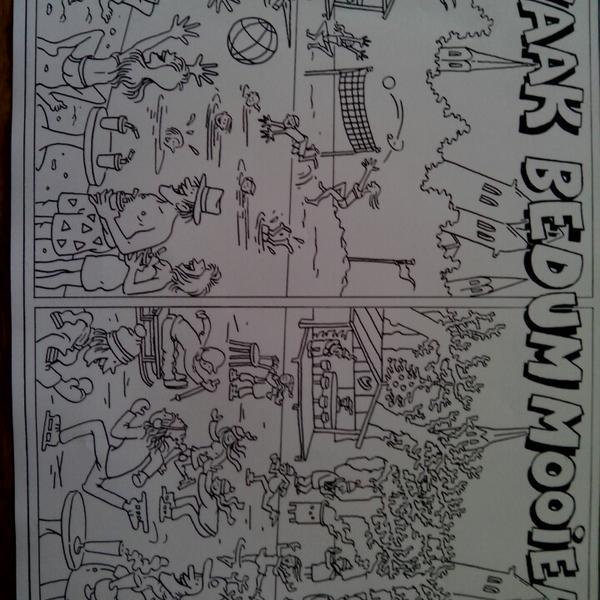 MAAK BEDUM MOOIER